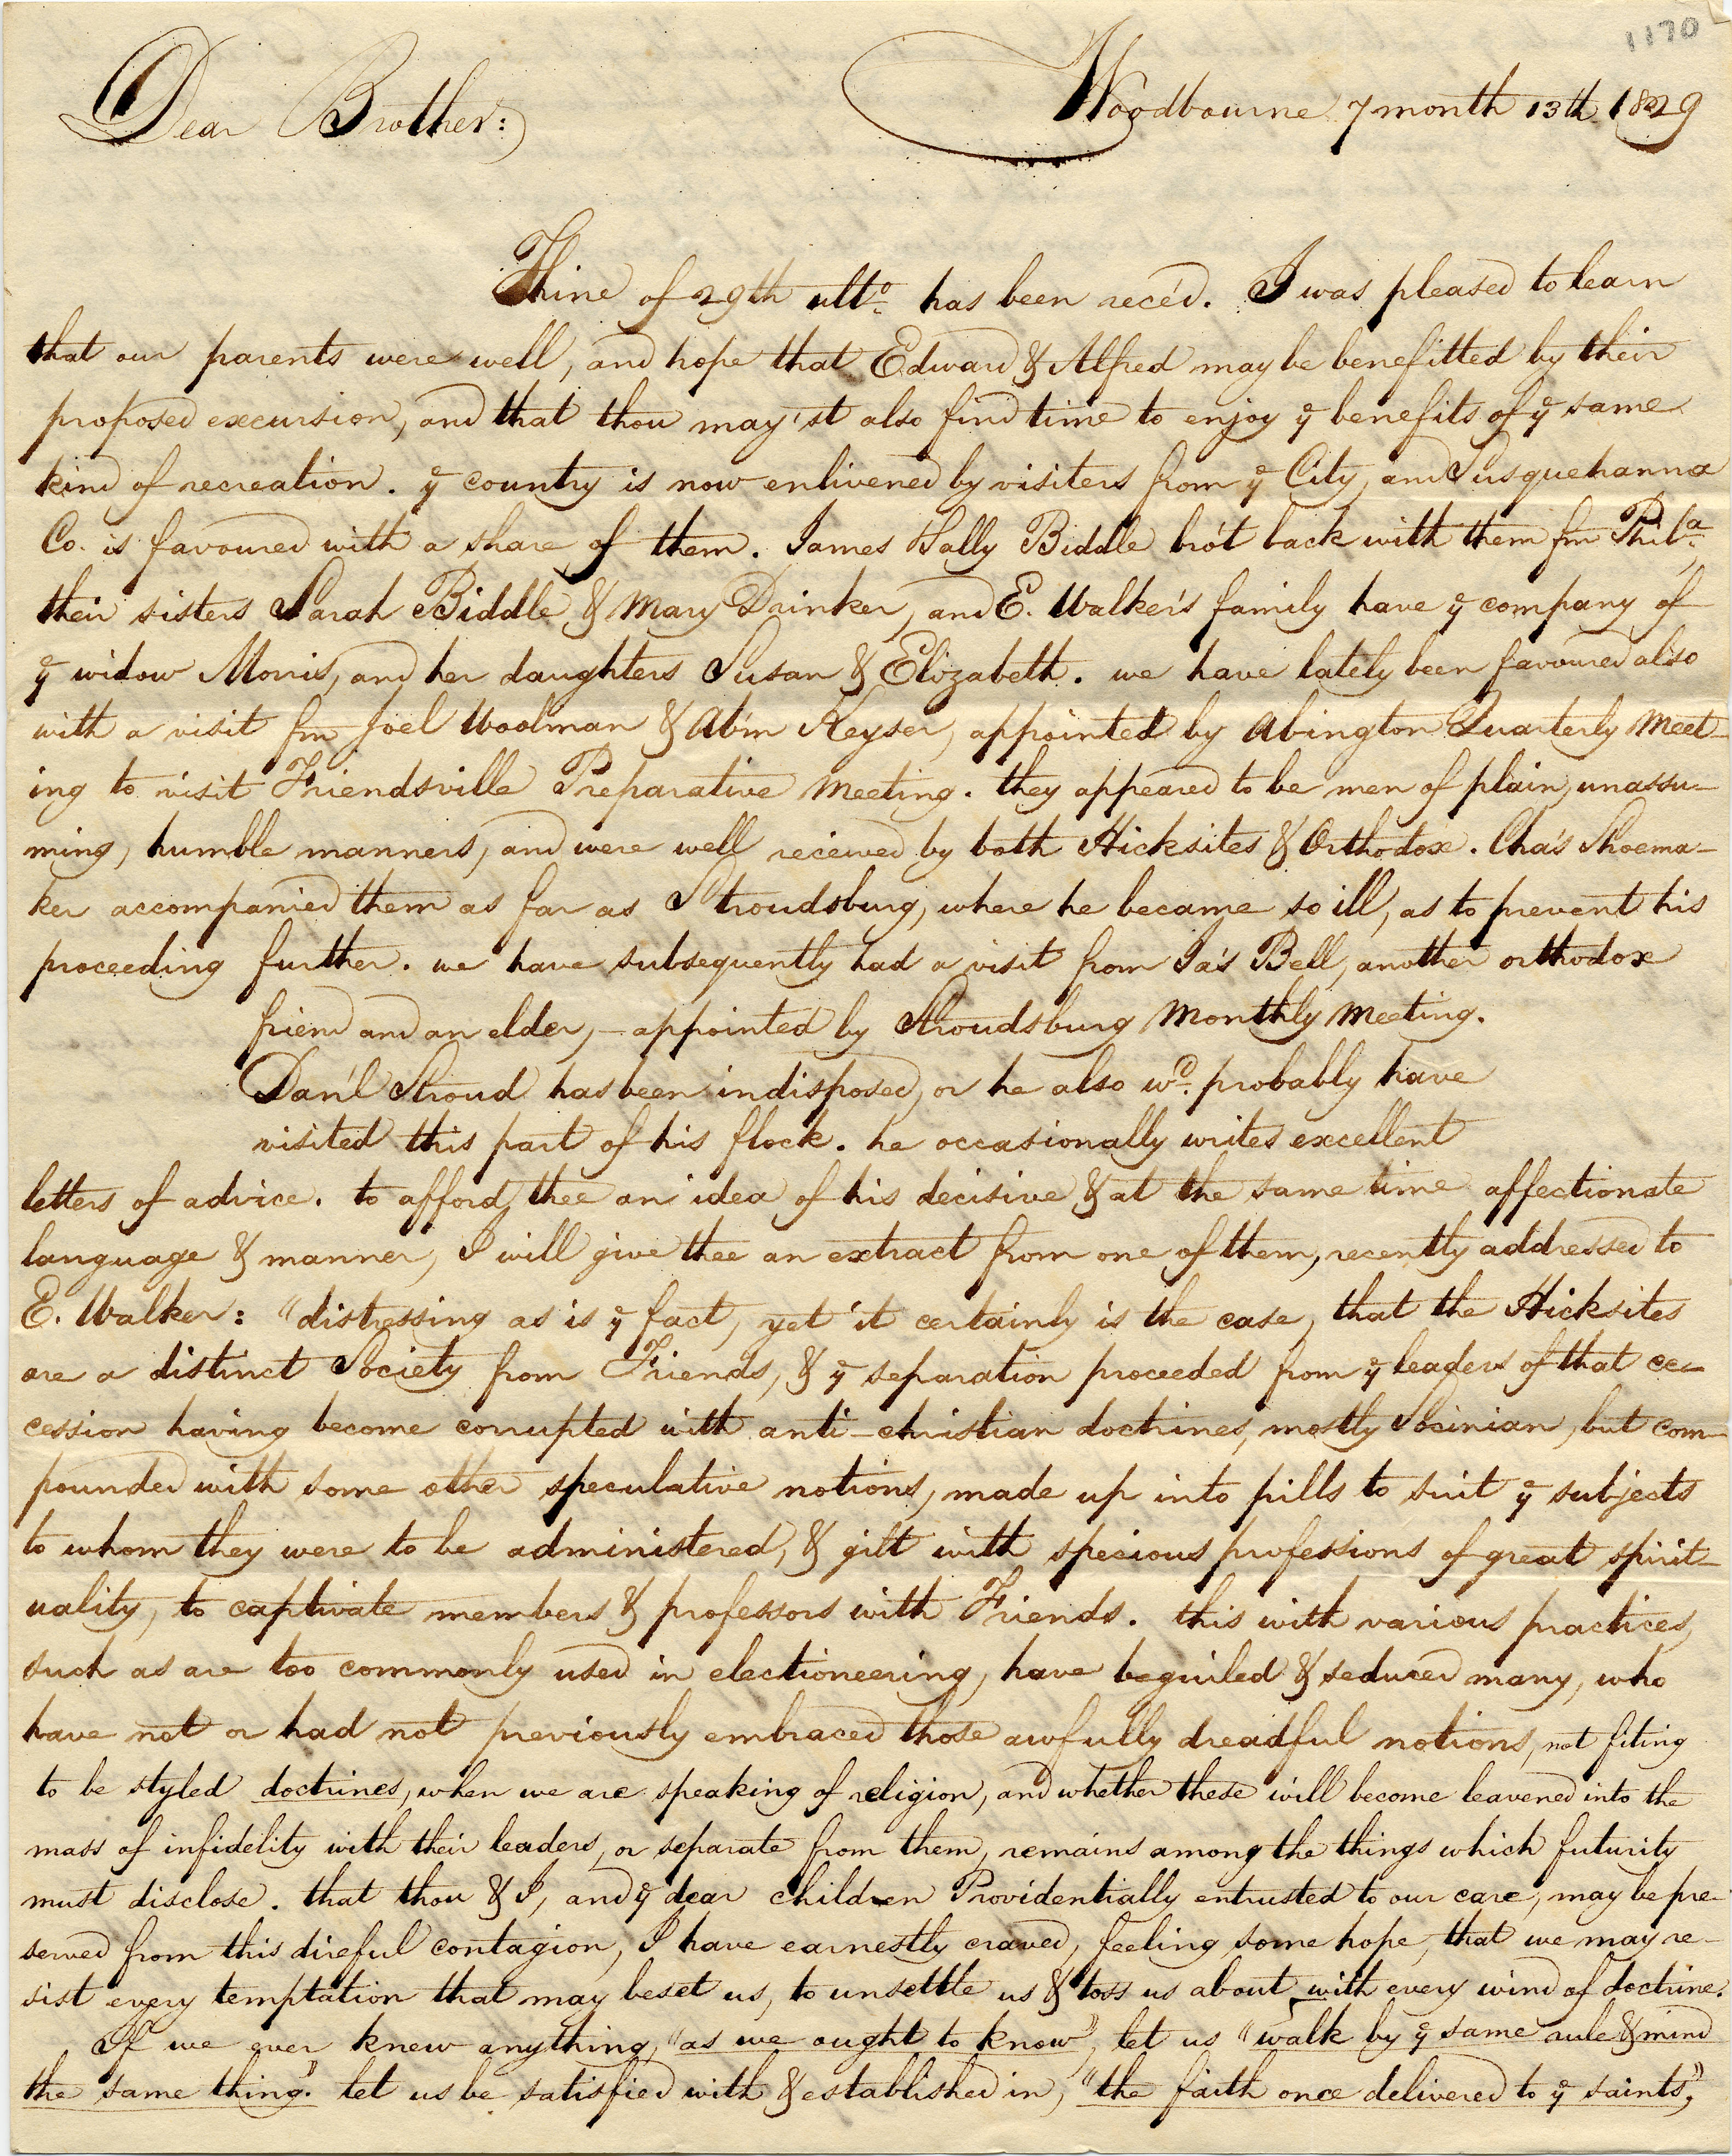 1170
Dear Brother: Woodbourne 7 month 13th 1829
Thine of 29th ulto. has been rece'd. I was pleased to learn
that our parents were well, and hope that Edward & Alfred may be benefitted by their
proposed excursion, and that thou may'st also find time to enjoy ye benefits of ye same
kind of recreation. ye country is now enlivened by visiters from ye City, and Susquehanna
Co. is favoured with a share of them. James Sally Biddle bro't back with them fm Phila.
their sisters Sarah Biddle & Mary Drinker, and E. Walker's family have ye company of
ye widow Morris, and her daughters Susan & Elizabeth. we have lately been favoured also
with a visit fm Joel Woolman & Ab'm Keyser, appointed by Abington Quarterly Meet-
ing to visit Friendsville Preparative Meeting. they appeared to be men of plain, unassu-
ming, humble manners, and were well received by both Hicksites & Orthodox. Cha's Shoema-
ker accompanied them as far as Stroudsburg, where he became so ill, as to prevent his
proceeding further. we have subsequently had a visit from Ja's Bell, another orthodox
friend and an elder, - appointed by Stroudsburg Monthly Meeting.
Dan'l Stroud has been indisposed, or he also wd. probably have
visited this part of his flock. he occasionally writes excellent
letters of advice. to afford thee an idea of his decisive & at the same time affectionate
language & manner, I will give thee an extract from one of them, recently addressed to
E. Walker: "distressing as is ye fact, yet it certainly is the case, that the Hicksites
are a distinct Society from Friends, & ye separation proceeded from ye leaders of that ce-
cession having become corrupted with anti-christian doctrines, mostly Socinian, but com-
pounded with some other speculative notions, made up into pills to suit ye subjects
to whom they were to be administered, & gilt with specious professions of great spirit-
uality, to captivate members & professors with Friends. this with various practices,
such as are too commonly used in electioneering, have beguiled & seduced many, who
have not or had not previously embraced those awfully dreadful notions, not fiting
to be styled doctrines, when we are speaking of religion, and whether these will become leavened into the
mass of infidelity with their leaders, or separate from them, remains among the things which futurity
must disclose. that thou & I, and ye dear children Providentially entrusted to our care, may be pre-
served from this direful contagion, I have earnestly craved, feeling some hope, that we may re-
sist every temptation that may beset us, to unsettle us & toss us about with every wind of doctrine.
If we ever knew anything, "as we ought to know", let us "walk by ye same rule & mind
the same thing." let us be satisfied with & established in, "the faith once delivered to ye saints",